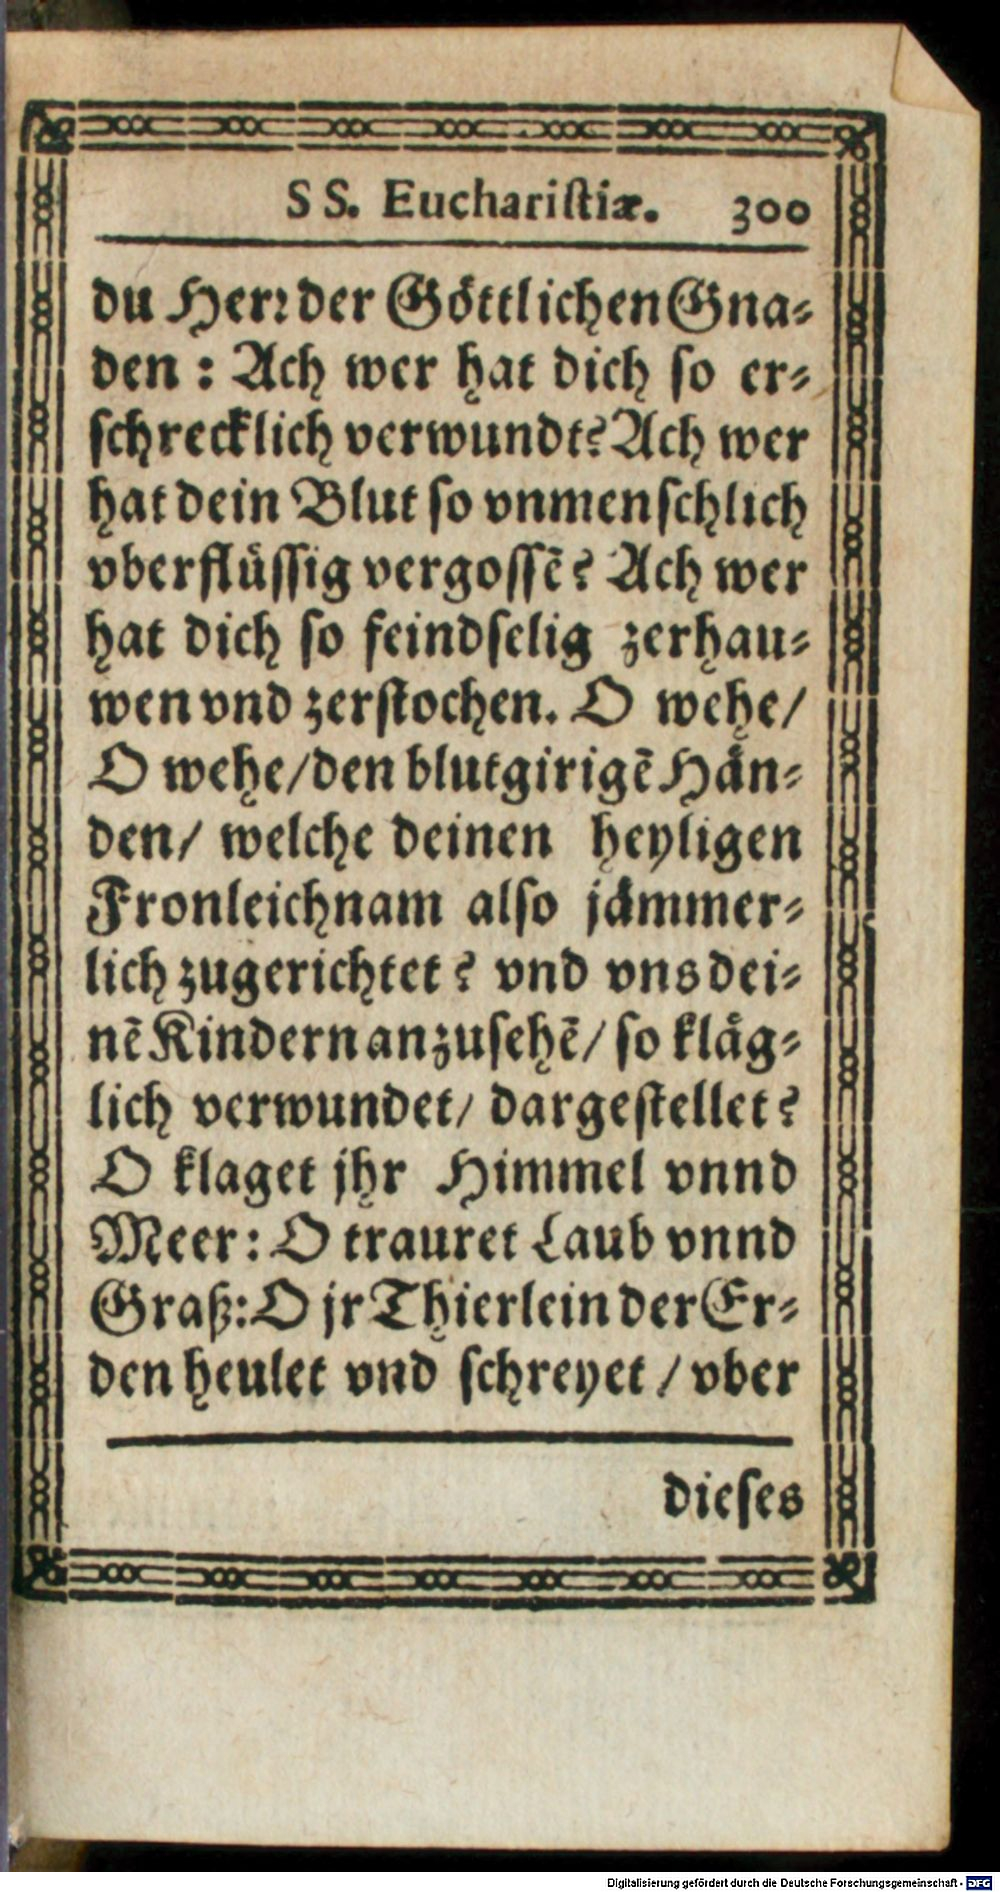 SS. Euchariſtiæ. 300
du Herꝛ der Goͤttlichen Gna⸗
den : Ach wer hat dich ſo er⸗
ſchrecklich verwundt? Ach wer
hat dein Blut ſo vnmenſchlich
vberfluͤſſig vergoſſẽ? Ach wer
hat dich ſo feindſelig zerhau⸗
wen vnd zerſtochen. O wehe/
O wehe/den blutgirigẽ Haͤn⸗
den/ welche deinen heyligen
Fronleichnam alſo jaͤmmer⸗
lich zugerichtet? vnd vns dei⸗
nẽ Kindern anzuſehẽ/ ſo klaͤg⸗
lich verwundet/ dargeſtellet?
O klaget jhr Himmel vnnd
Meer: O trauret Laub vnnd
Graß: O jr Thierlein der Er⸗
den heulet vnd ſchreyet / vber
dieſes
Digitalisierung gefördert durch die Deutsche Forschungsgemeinschaft - DFG